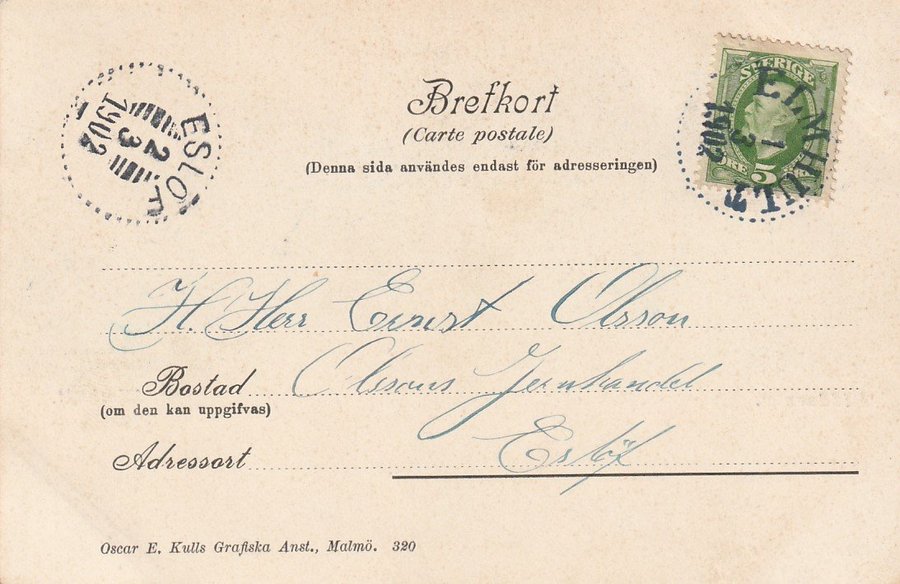 Brefkort
(Carte postale)
(Denna sida användes endast för adresseringen)
ESLÖF
2
3
1902
SVERIGE
5
ELMHULT
1
3
1902
H. Herr Ernst Olsson
Bostad Olssons Jernhandel
(om den kan uppgifvas)
Adressort Eslöf
Oscar E. Kulls Grafiska Anst., Malmö. 320